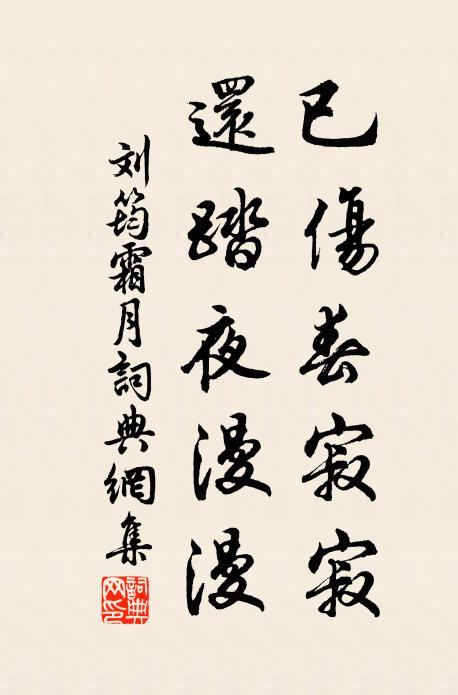 已傷春寂寂
還踏夜漫漫
刘筠霜月詞典網集
詞典網印